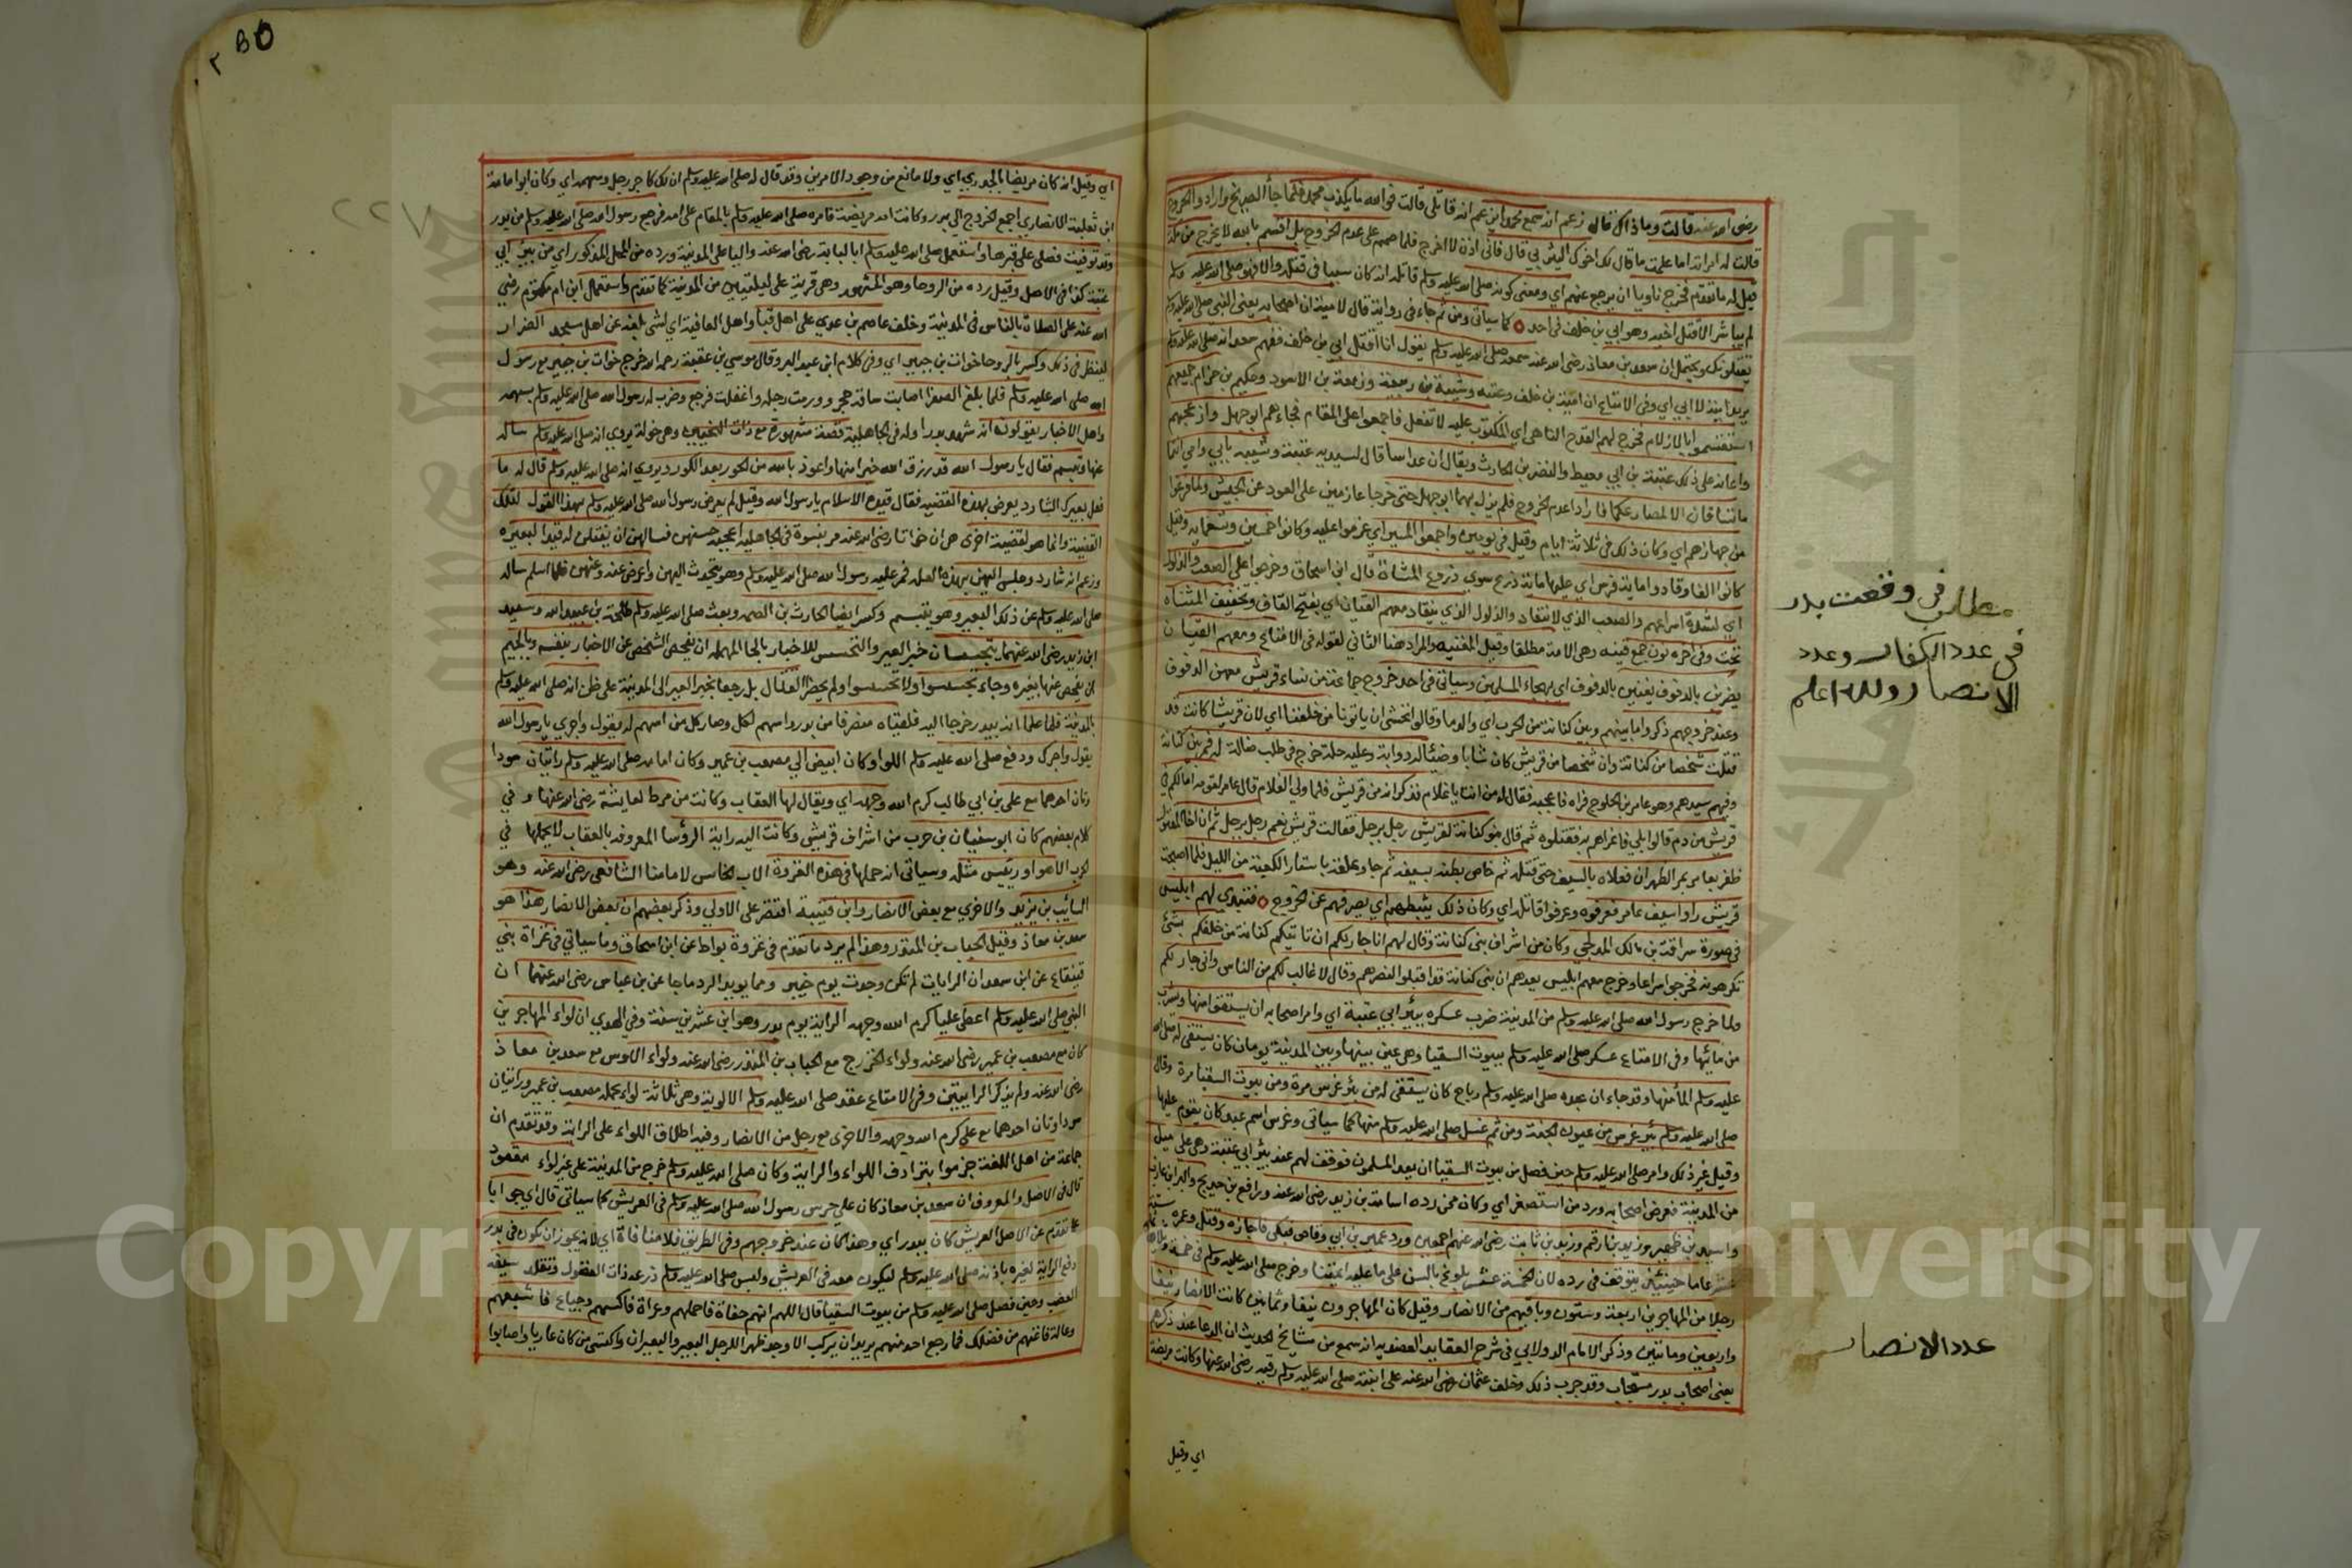 رضى الله عنه قالت وماذاك قال زعم انه سمع محمدا يزعم انه قاتلى قالت فوالله ما يكذب محمد فلما جأ الصريخ وارادوا الخروج
قالت له امراته اما علمت ما قال لك اخوك اليثربي قال فانى اذن لا اخرج فلما صمم على عدم الخروج بل اقسم بالله لا يخرج من مكة
قيل له ما تقدم فخرج ناويا ان يرجع عنهم اي ومعنى كونه صلى الله عليه وسلم قاتله انه كان سببا فى قتله والا فهو صلى الله عليه وسلم
لم يباشر الا قتل اخيه وهو ابي بن خلف فى احد كما سياتى ومن ثم جاء فى رواية قال لامية ان اصحابه يعنى النبي صلى الله عليه وسلم
يقتلونك ويحتمل ان سعد بن معاذ رضى الله عنه سمعه صلى الله عليه وسلم يقول انا اقتل ابي بن خلف ففهم سعد انه صلى الله عليه وسلم
يريد امية لا ابي اي وفى الامتاع ان امية بن خلف وعتبه وشيبة بن ربيعة وزمعة بن الاسود وحكيم بن حزام جميعهم
استقسموا بالازلام فخرج لهم القدح الناهى اي المكتوب عليه لا تفعل فاجمعوا على المقام فجاءهم ابو جهل وازعجهم
واعانه على ذلك عقبة بن ابي معيط والنضر بن الحارث ويقال ان عداسا قال لسيديه عتبة وشيبه بابي وامي انتما
ما تساقان الا لمصارعكما فارادا عدم الخروج فلم يزل بهما ابو جهل حتى خرجا عازمين على العود عن الجيش ولما فرغوا
من جهازهم اي وكان ذلك فى ثلاثة ايام وقيل فى يومين واجمعوا المسير اي عزموا عليه وكانوا خمسين وتسعماية وقيل
كانوا الفا وقادوا ماية فرس اي عليها ماية درع سوي دروع المشاة قال ابن اسحاق وخرجوا على الصعب والذلول
اي لشدة اسراعهم والصعب الذي لا ينقاد والذلول الذي ينقاد معهم القيان اي بفتح القاف وتخفيف المثناه
تحت وفى اخره نون جمع قينه وهى الامة مطلقا وقيل المغنيه والمراد هنا الثانى لقوله فى الامتاع ومعهم القيان
يضربن بالدفوف يغنين بالدفوف اي بهجاء المسلمين وسياتى فى احد خروج جماعة من نساء قريش معهن الدفوف
وعند خروجهم ذكروا ما بينهم وبين كنانة من الحرب اي والدما وقالوا نخشى ان ياتونا من خلفنا اي لان قريشا كانت قد
قتلت شخصا من كنانة وان شخصا من قريش كان شابا وضيئا له دوابة وعليه حلة خرج فى طلب ضالة له فمر ببنى كنانة
وفيهم سيدهم وهو عامر بن الخلوج فراه فاعجبه فقال له من انت يا غلام فذكر انه من قريش فلما ولى الغلام قال عامر لقومه امالكم فى
قريش من دم قالوا بلي فاغراهم به فقتلوه ثم قال بنو كنانة لقريش رجل برجل فقالت قريش نعم رجل برجل ثم ان اخا المقتول
ظفر بعامر بمر الظهران فعلاه بالسيف حتى قتله ثم خاض بطنه بسيفه ثم جا وعلقه باستار الكعبة من الليل فلما اصبحت
قريش راوا سيف عامر فعرفوه وعرفوا قاتله اي وكان ذلك يثبطهم اي يصرفهم عن الخروج فتبدي لهم ابليس
فى صورة سراقة بن مالك المدلجي وكان من اشراف بنى كنانة وقال لهم انا جار لكم ان تاتيكم كنانة من خلفكم بشئ
تكرهونه فخرجوا سراعا وخرج معهم ابليس يعدهم ان بنى كنانة قد اقبلوا لنصرهم وقال لا غالب لكم من الناس وانى جار لكم
ولما خرج رسول الله صلى الله عليه وسلم من المدينة ضرب عسكره ببئر ابي عتبة اي وامر اصحابه ان يستقوا منها وشرب
من مائها وفى الامتاع عسكر صلى الله عليه وسلم ببيوت السقيا وهى عين بينها وبين المدينة يومان كان يستقى له صلى الله
عليه وسلم المأ منها وقد جاء ان عبده صلى الله عليه وسلم رباح كان يستقى له من بئر غرس مرة ومن بيوت السقيا مرة وقال
صلى الله عليه وسلم بئر غرس من عيون الجنة ومن ثم غسل صلى الله عليه وسلم منها كما سياتى وغرس اسم عبد كان يقوم عليها
وقيل غير ذلك وامر صلى الله عليه وسلم حين فصل من بيوت السقيا ان يعد المسلمون فوقف لهم عند بئر ابي عتبة وهى على ميل
من المدينة فعرض اصحابه ورد من استصغر اي وكان ممن رده اسامة بن زيد رضى الله عنه ورافع بن خديج والبراء بن عازب
واسيد بن ظهير وزيد بن ارقم وزيد بن ثابت رضى الله عنهم اجمعين ورد عمير بن ابي وقاص فبكى فاجازه وقتل وعمره ستة
عشر عاما حينئذ يتوقف فى رده لان الخمسة عشر بلوغ بالسن على ما عليه ايمتنا وخرج صلى الله عليه وسلم فى خمسة
رجلا من المهاجرين اربعة وستون وباقيهم من الانصار وقيل كان المهاجرون نيفا وثمانين كانت الانصار نيفا
واربعين ومائتين وذكر الامام الدوانى فى شرح العقايد العضديه انه سمع من مشايخ الحديث ان الدعا عند ذكرهم
يعنى اصحاب بدر مستجاب وقد جرب ذلك وخلف عثمان رضى الله عنه على ابنته صلى الله عليه وسلم رقيه رضى الله عنها وكانت مريضة
اي وقيل
مطلب فى وقعت بدر
فى عدد الكفار وعدد
الانصار والله اعلم
عدد الانصار
اي وقيل انه كان مريضا بالجدري اي ولا مانع من وجود الامرين وقد قال له صلى الله عليه وسلم ان لك لاجر رجل وسهمه اي وكان ابو امامة
ابن ثعلبة الانصاري اجمع الخروج الى بدر وكانت امه مريضة فامره صلى الله عليه وسلم بالمقام على امه فرجع رسول الله صلى الله عليه وسلم من بدر
وقد توفيت فصلى على قبرها واستعمل صلى الله عليه وسلم ابا لبابة رضى الله عنه واليا على المدينة ورده من المحل المذكور اي من بئر ابي
عتبة كذا فى الاصل وقيل رده من الروحا وهو المشهور وهى قرية على ليلتين من المدينة كما تقدم واستعمل ابن ام مكتوم رضي
الله عنه على الصلاة بالناس فى المدينة وخلف عاصم بن عدي على اهل قبا واهل العالية اي لشئ بلغه عن اهل مسجد الضرار
لينظر فى ذلك وكسر بالروحا خوات بن جبير اي وفى كلام ابن عبد البر وقال موسي بن عقبة رحمه الله خرج خوات بن جبير مع رسول
الله صلى الله عليه وسلم فلما بلغ الصفرا اصابت ساقه حجر وورمت رجله واعتلت فرجع وضرب له رسول الله صلى الله عليه وسلم بسهمه
واهل الاخبار يقولون انه شهد بدرا وله فى الجاهلية قصة مشهورة مع ذات النحيين وهى خولة يروي انه صلى الله عليه وسلم ساله
عنها وتبسم فقال يا رسول الله قد رزق الله خيرا منها واعوذ بالله من الحور بعد الكور ويروي انه صلى الله عليه وسلم قال له ما
فعل بعيرك الشارد يعرض بهذه القضيه فقال قيده الاسلام يا رسول الله وقيل لم يعرض رسول الله صلى الله عليه وسلم بهذا القول لتلك
القضية وانما هو لقضية اخرى هى ان خواتا رضى الله عنه مر بنسوة فى الجاهلية اعجبه حسنهن فسالهن ان يفتلن له قيدا لبعيره
وزعم انه شارد وجلس اليهن بهذه العلة فمر عليه رسول الله صلى الله عليه وسلم وهو يتحدث اليهن واعرض عنه وعنهن فلما اسلم ساله
صلى الله عليه وسلم عن ذلك البعير وهو يتبسم وكسر ايضا الحارث بن الصمه وبعث صلى الله عليه وسلم طلحة بن عبيد الله وسعيد
ابن زيد رضى الله عنهما يتجسسان خبر العير والتحسس للاخبار بالحا المهملة ان يفحص الشخص عن الاخبار بنفسه وبالجيم
ان يفحص عنها بغيره وجاء تحسسوا ولا تجسسوا ولم يحضرا القتال بل رجعا بخبر العير الى المدينة على ظن انه صلى الله عليه وسلم
بالمدينة فلما علما انه ببدر خرجا اليه فلقياه منصرفا من بدر واسهم لكل وصار كل من اسهم له يقول واجري يا رسول الله
يقول واجرك ودفع صلى الله عليه وسلم اللوا وكان ابيض الى مصعب بن عمير وكان امامه صلى الله عليه وسلم رايتان سودا
وتان احدهما مع على بن ابي طالب كرم الله وجهه اي ويقال لها العقاب وكانت من مرط لعايشة رضى الله عنها وفي
كلام بعضهم كان ابو سفيان بن حرب من اشراف قريش وكانت اليه راية الرؤسا المعروفه بالعقاب لا يحملها في
الحرب الا هو او رئيس مثله وسياتى انه حملها فى هذه الغزوة الاب الخامس لامامنا الشافعى رضى الله عنه وهو
السائب بن يزيد والاخري مع بعض الانصار وابن قتيبة اقتصر على الاولي وذكر بعضهم ان بعض الانصار هذا هو
سعد بن معاذ وقيل الحباب بن المنذر وهذا لم يرد ما تقدم فى غزوة بواط عن ابن اسحاق وما سياتى فى غزاة بني
قينقاع عن ابن سعد ان الرايات لم تكن وجدت يوم خيبر ومما يويد الرد ما جا عن بن عباس رضى الله عنهما ان
النبي صلى الله عليه وسلم اعطى عليا كرم الله وجهه الراية يوم بدر وهو ابن عشرين سنة وفى الهدي ان لواء المهاجرين
كان مع مصعب بن عمير رضى الله عنه ولواء الخزرج مع الحباب بن المنذر رضى الله عنه ولواء الاوس مع سعد بن معاذ
رضى الله عنه ولم يذكر الرايتين وفى الامتاع عقد صلى الله عليه وسلم الالوية وهى ثلاثة لواء يحمله مصعب بن عمير ورايتان
سوداوتان احدهما مع على كرم الله وجهه والاخرى مع رجل من الانصار وفيه اطلاق اللواء على الراية وقد تقدم ان
جماعة من اهل اللغة جزموا بترادف اللواء والراية وكان صلى الله عليه وسلم خرج من المدينة على غير لواء معقود
قال فى الاصل والمعروف ان سعد بن معاذ كان على حرس رسول الله صلى الله عليه وسلم فى العريش كما سياتى قال اي
ما تقدم عن الاصل العريش كان ببدر اي وهذا كان عند خروجهم وفى الطريق فلا منافاة اي لانه يجوز ان يكون فى بدر
دفع الراية لغيره باذنه صلى الله عليه وسلم ليكون معه فى العريش ولبس صلى الله عليه وسلم درعه ذات الفضول وتقلد سيفه
العضب وحين فصل صلى الله عليه وسلم من بيوت السقيا قال اللهم انهم حفاة فاحملهم وعراة فاكسهم وجياع فاشبعهم
وعالة فاغنهم من فضلك فما رجع احد منهم يريد ان يركب الا وجد ظهرا للرجل البعير والبعيران واكتسى من كان عاريا واصابوا
٢٢٧
Copyright © King Saud University